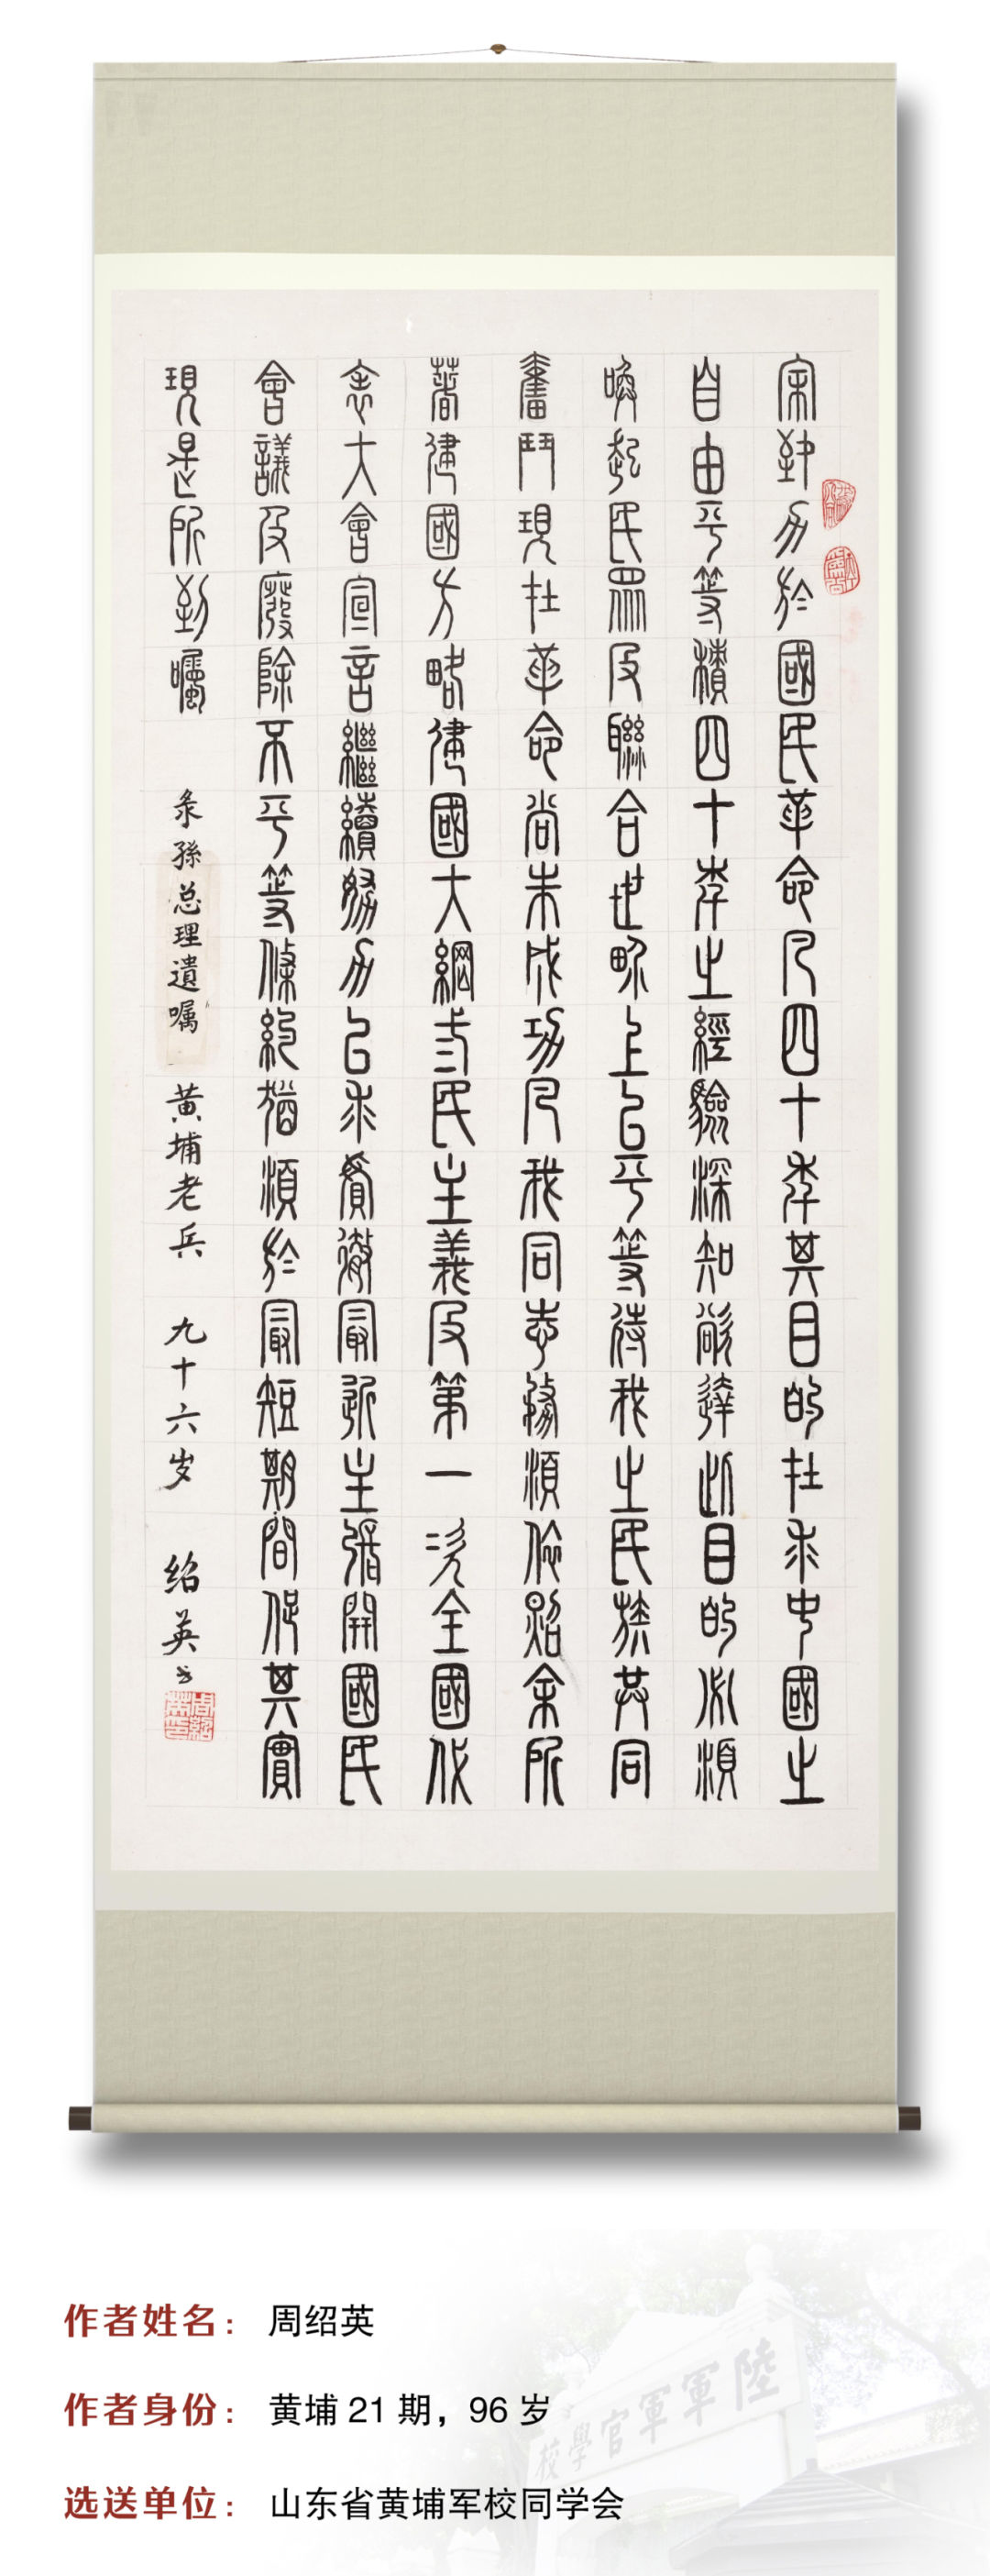 余致力於國民革命凡四十年其目的在求中國之
自由平等積四十年之經驗深知欲達此目的必須
喚起民眾及聯合世界上以平等待我之民族共同
奮鬥現在革命尚未成功凡我同志務須依照余所
著建國方略建國大綱三民主義及第一次全國代
表大會宣言繼續努力以求貫徹最近主張開國民
會議及廢除不平等條約猶須於最短期間促其實
現是所至囑 录孫总理遺嘱 黄埔老兵 九十六岁 绍英书
作者姓名： 周绍英
作者身份： 黄埔 21 期，96 岁
选送单位： 山东省黄埔军校同学会
陸軍軍官學校